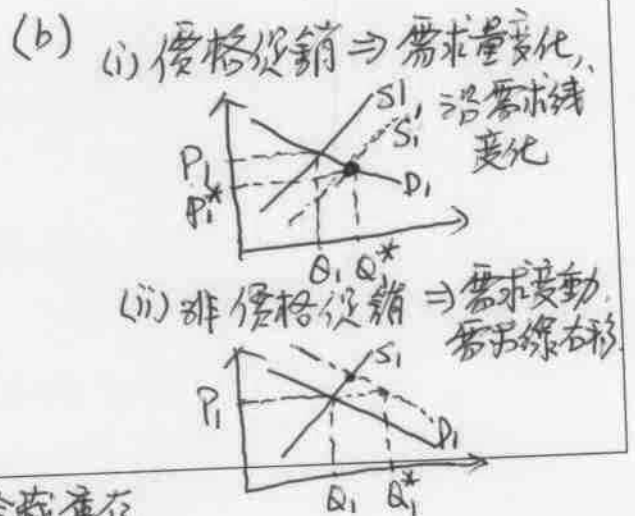 (b) (i) 價格促銷 ⇒ 需求量变化,
沿需求线
变化
S1
S1'
P1
P1*
D1
Q1 Q1*
(ii) 非價格促銷 ⇒ 需求变動,
需求線右移
S1
P1
D1
Q1 Q1*